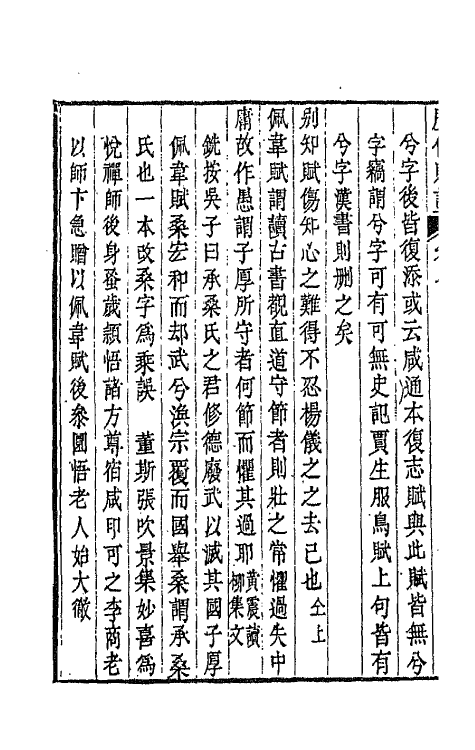 兮字後皆復添或云咸通本復志賦與此賦皆無兮
字竊謂兮字可有可無史記賈生服鳥賦上句皆有
兮字漢書則刪之矣
别知賦傷知心之難得不忍楊儀之之去已也 仝上
佩韋賦謂讀古書觀直道守節者則壯之常懼過失中
庸故作愚謂子厚所守者何節而懼其過耶 黃震讀柳集文
銑按吳子曰承桑氏之君修德廢武以滅其國子厚
佩韋賦桑宏和而却武兮渙宗覆而國舉桑謂承桑
氏也一本改桑字為乘誤 董斯張吹景集妙喜為
悅禪師後身蚤歲頴悟諸方尊宿咸印可之李商老
以師卞急贈以佩韋賦後參圜悟老人始大徹